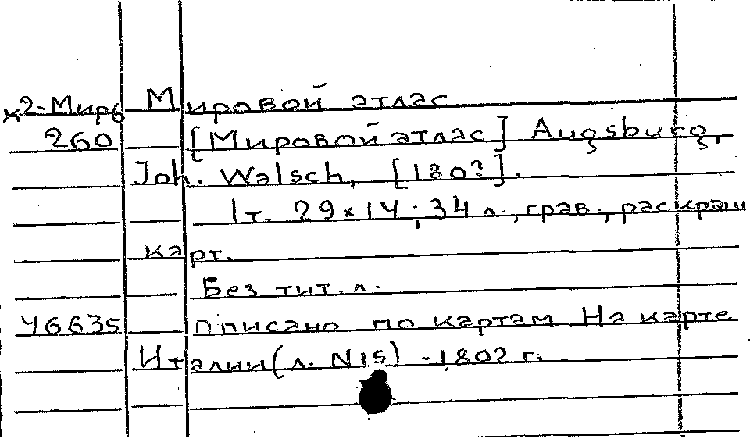 к2-Мир6 Мировой атлас
260 [Мировой атлас] Augsburg,
Joh. Walsch, [1802].
1т. 29×14; 34 л., грав., раскраш
карт.
Без тит. л.
46635 Описано по картам На карте
Италии (л. N15) - 1802 г.